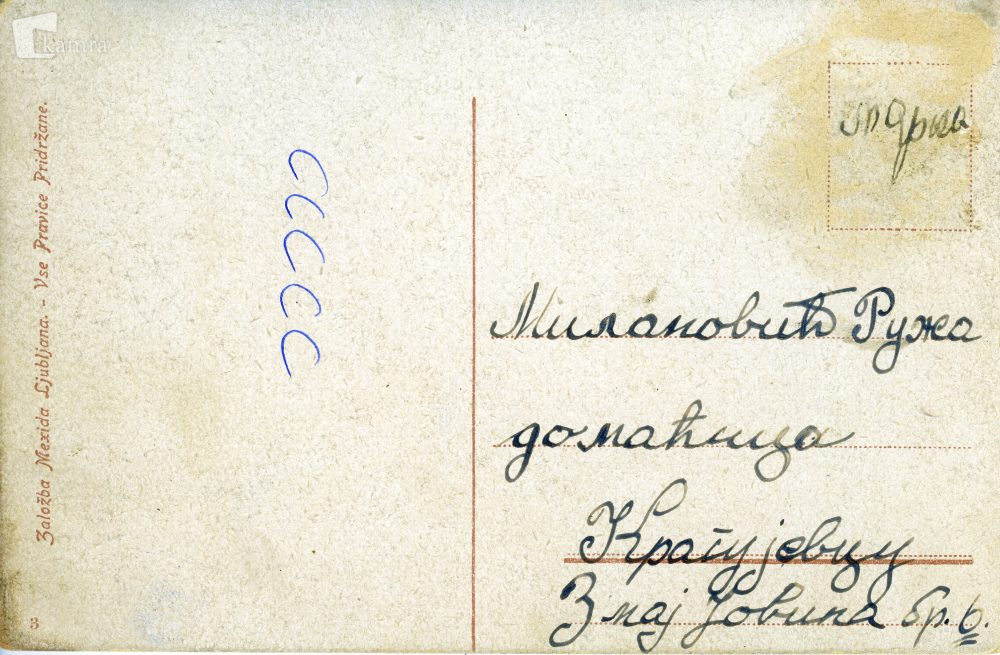 kamra
Založba Mexida Ljubljana. - Vse Pravice Pridržane.
3
Милановић Ружа
домаћица
Крагујевцу
Змај Јовина бр. 6.